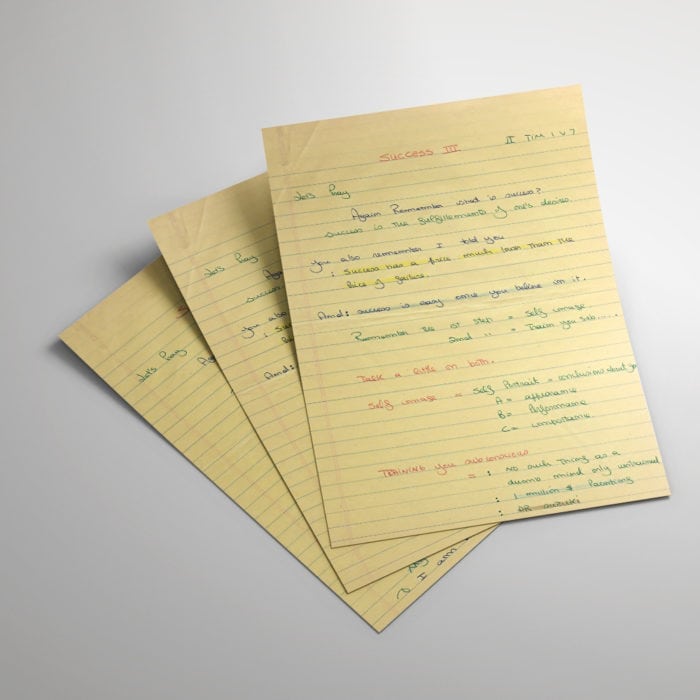 Success III
II TIM 1 V 7
let's Pray
Again Remember what is success?
success is the fulfillements of one's desires.
you also remember I told you
: Success has a price much lower than the
Price of failure.
And: success is easy once you believe in it.
Remember the 1st step = Self image
2nd " = Train you sub.....
Talk a little on both.
Self image = Self Portrait = conclusions about yo
A = apperance
B = Performance
C = importance
TRAINING you subconscious
= : No such thing as a
dumb mind only untrained
: 1 million $
: DR suzuki
let's Pray
Ag
success
you also
: Su
And:
let's Pray
I am